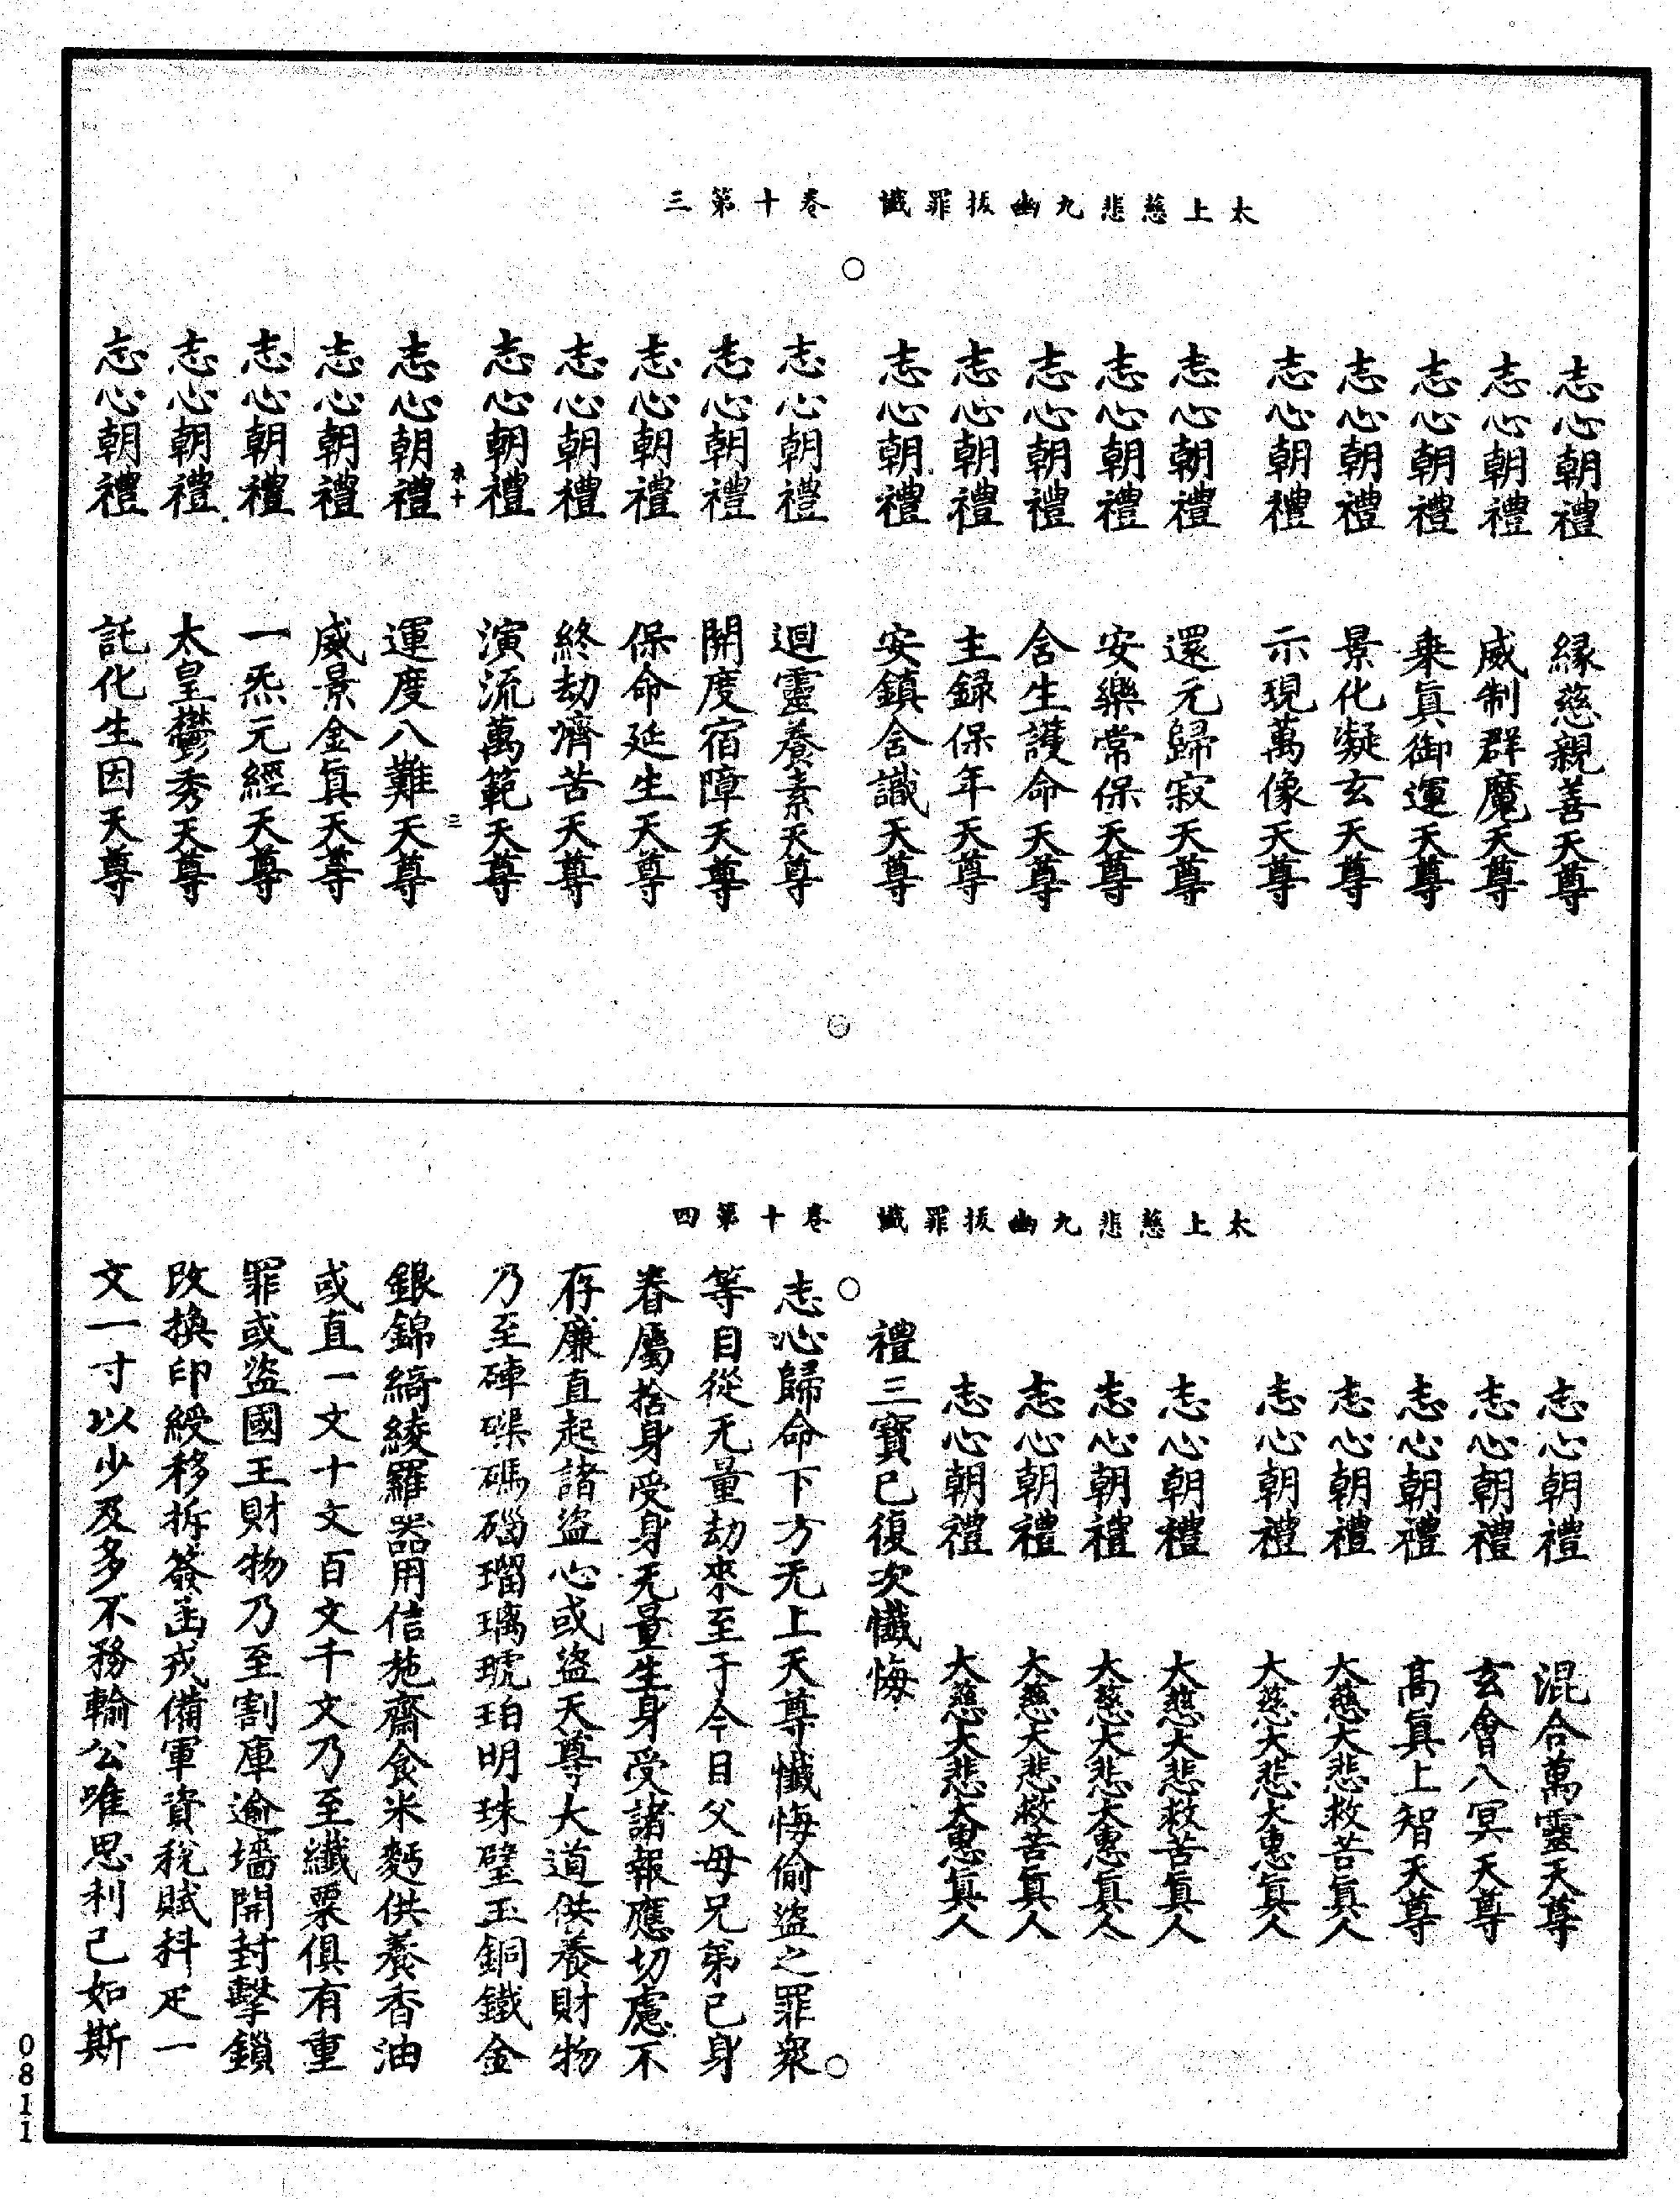 太上慈悲九幽拔罪懺　卷十第三
志心朝禮　緣慈親善天尊
志心朝禮　威制群魔天尊
志心朝禮　乗真御運天尊
志心朝禮　景化凝玄天尊
志心朝禮　示現萬像天尊
志心朝禮　還元歸寂天尊
志心朝禮　安樂常保天尊
志心朝禮　含生護命天尊
志心朝禮　主録保年天尊
志心朝禮　安鎮含識天尊
志心朝禮　迴靈養素天尊
志心朝禮　開度宿障天尊
志心朝禮　保命延生天尊
志心朝禮　終劫濟苦天尊
志心朝禮　演流萬範天尊
三
志心朝禮　運度八難天尊
志心朝禮　威景金真天尊
志心朝禮　一炁元經天尊
志心朝禮　太皇鬱秀天尊
志心朝禮　託化生因天尊
太上慈悲九幽拔罪懺　卷十第四
志心朝禮　混合萬靈天尊
志心朝禮　玄會八冥天尊
志心朝禮　高真上智天尊
志心朝禮　大慈大悲救苦真人
志心朝禮　大慈大悲大惠真人
志心朝禮　大慈大悲救苦真人
志心朝禮　大慈大悲大惠真人
志心朝禮　大慈大悲救苦真人
志心朝禮　大慈大悲大惠真人
禮三寶已復次懺悔
志心歸命下方无上天尊懺悔偷盜之罪衆
等自從无量劫來至于今日父母兄弟己身
眷屬捨身受身无量生身受諸報應切慮不
存廉直起諸盜心或盜天尊大道供養財物
乃至硨磲碼碯瑠璃琥珀明珠璧玉銅鐵金
銀錦綺綾羅器用信施齋食米麪供養香油
或直一文十文百文千文乃至纖粟俱有重
罪或盜國王財物乃至割庫逾墻開封擊鎖
改換印綬移拆簽函戎備軍資稅賦料疋一
文一寸以少及多不務輸公唯思利己如斯
0811